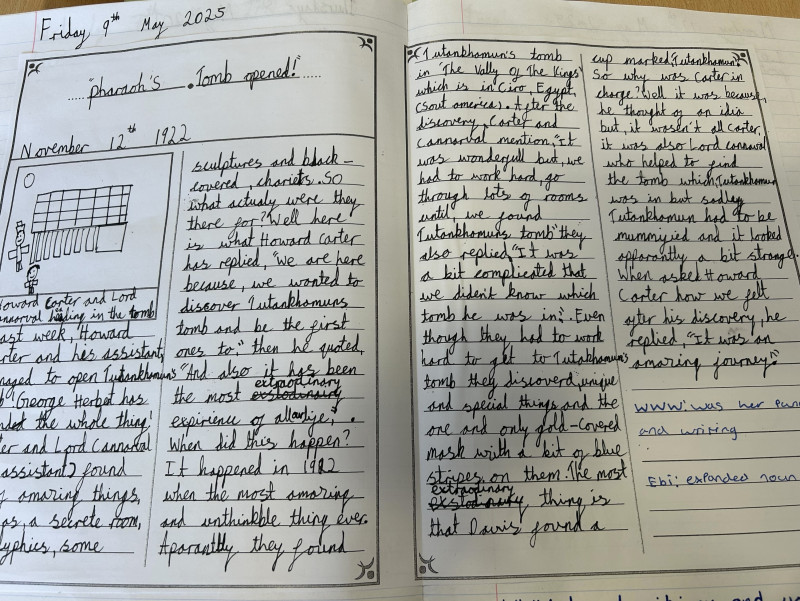 Friday 9th May 2025
"pharaoh's Tomb opened!"
November 12th 1922
Howard Carter and Lord
in the tomb
last week, Howard
Carter and his assistant,
managed to open Tutankhamun's
George Herbet has
the whole thing!
Carter and Lord Cannarval
assistant) found
amazing things,
as, a secrete room,
some
sculptures and black-
covered, chariets. SO
what actualy were they
there for? Well here
is what Howard Carter
has replied, "We are here
because, we wanted to
discover Tutankhamuns
tomb and be the first
ones to," then he quoted,
"And also it has been
extraodinary
the most
expirience of
When did this happen?
It happened in 1922
when the most amazing
and unthinkble thing ever.
Aparantly they found
Tutankhamun's tomb
in 'The Vally Of The Kings'
which is in Ciro, Egypt,
(Sout america). After the
discovery, Carter and
Cannarval mention, "It
was wonderfull but, we
had to work hard, go
through lots of rooms
until, we found
Tutankhamuns tomb" they
also replied, "It was
a bit complicated that
we dident know which
tomb he was in". Even
though they had to work
hard to get to Tutakhamun's
tomb they discoverd, unique
and special things and the
one and only gold-covered
mask with a bit of blue
stripes on them. The most
extraodinary
thing is
that Davis found a
cup marked, Tutankhamun".
So why was Carter in
charge? Well it was because,
he thought of an idia
but, it wasen't all Carter,
it was also Lord cannarval
who helped to find
the tomb which, Tutankhamun
was in but sadley
Tutankhamun had to be
mummyied and it looked
apparantly a bit strange.
When asked Howard
Carter how we felt
after his discovery, he
replied, "It was an
amazing journey!"
WWW: was her
and writing
Ebi: expanded noun